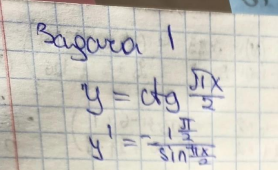 Задача 1
y = ctg πx/2
y' = -1 π/2 / sin πx/2